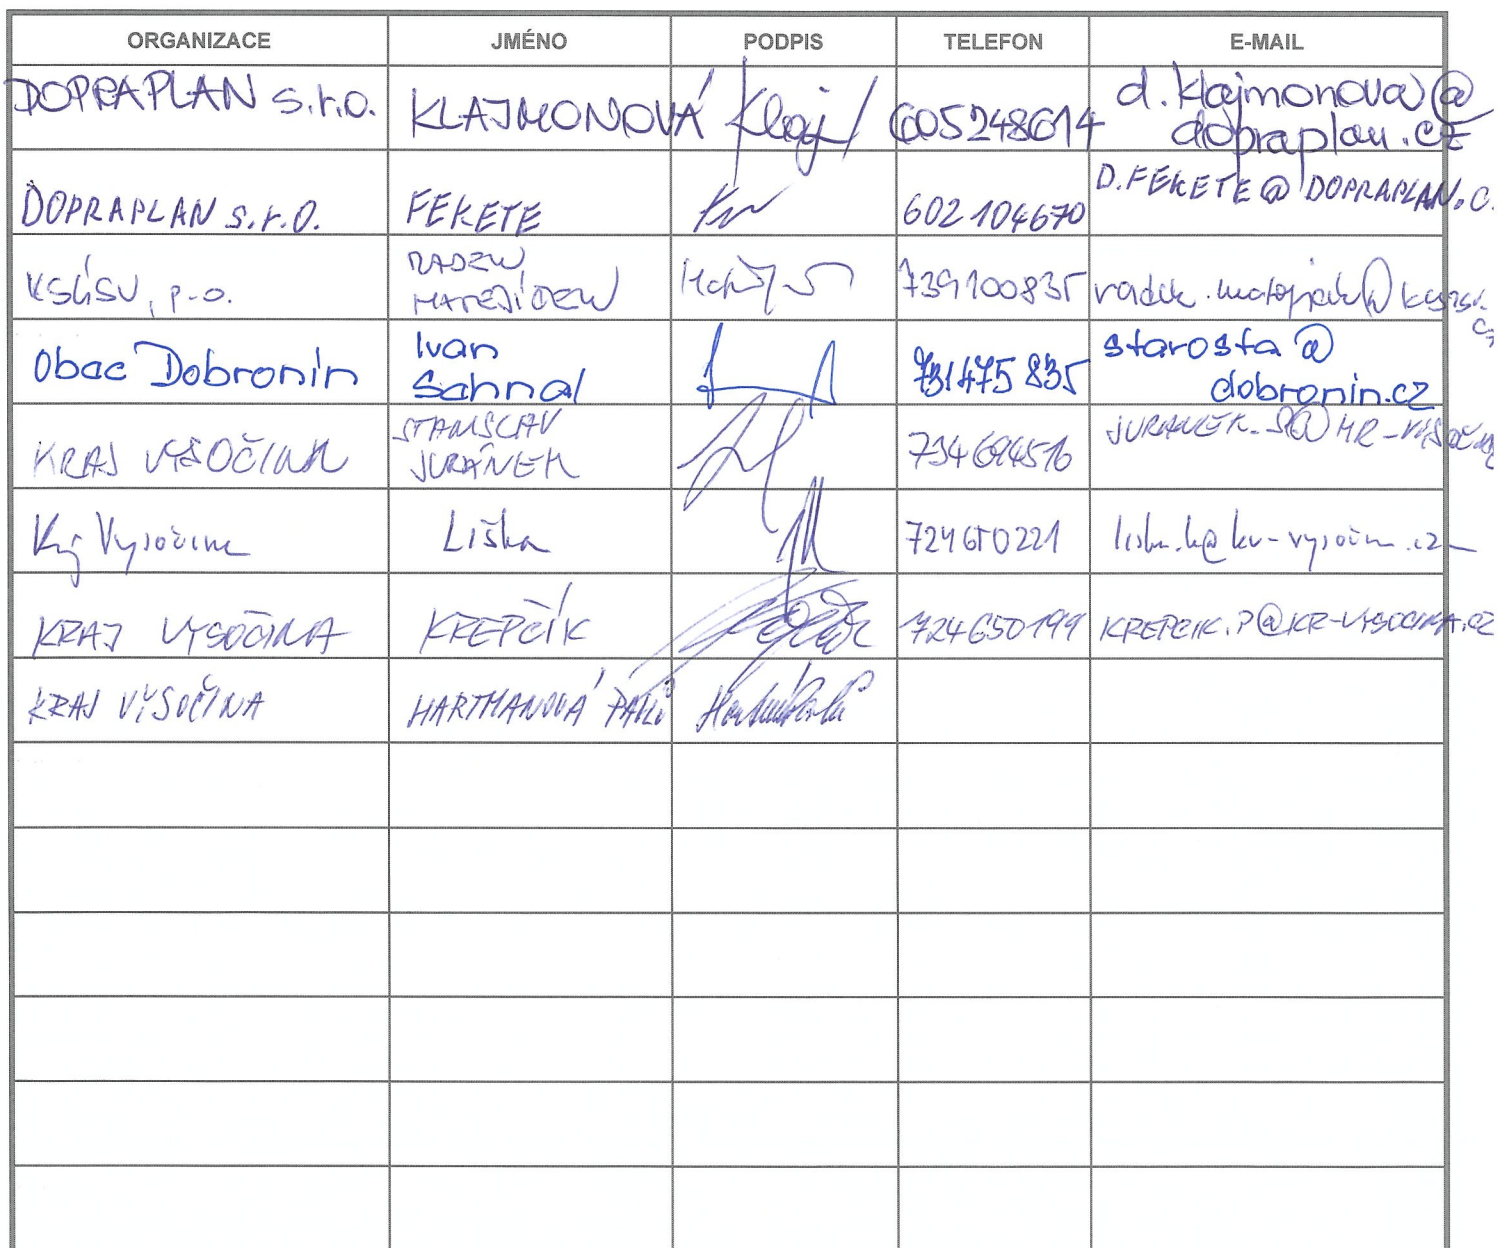 ORGANIZACE JMÉNO PODPIS TELEFON E-MAIL
DOPRAPLAN s.r.o. KLAJMONOVÁ Klaj 605248614 d.klajmonova@
dopraplan.cz
DOPRAPLAN s.r.o. FEKETE 602104670 D.FEKETE@DOPRAPLAN.C
KSÚSV, p.o. RADEK 739100835
MATĚJÍČEK
Obec Dobronín Ivan 731475835 starosta@
Sehnal dobronin.cz
KRAJ VYSOČINA STANISLAV 734694516 JURANEK.S@KR-VYSOČINA
JURÁNEK
Kraj Vysočina Liška 724650221
KRAJ VYSOČINA KREPČÍK 724650199 KREPCIK.P@KR-VYSOCINA.CZ
KRAJ VYSOČINA HARTMANOVÁ